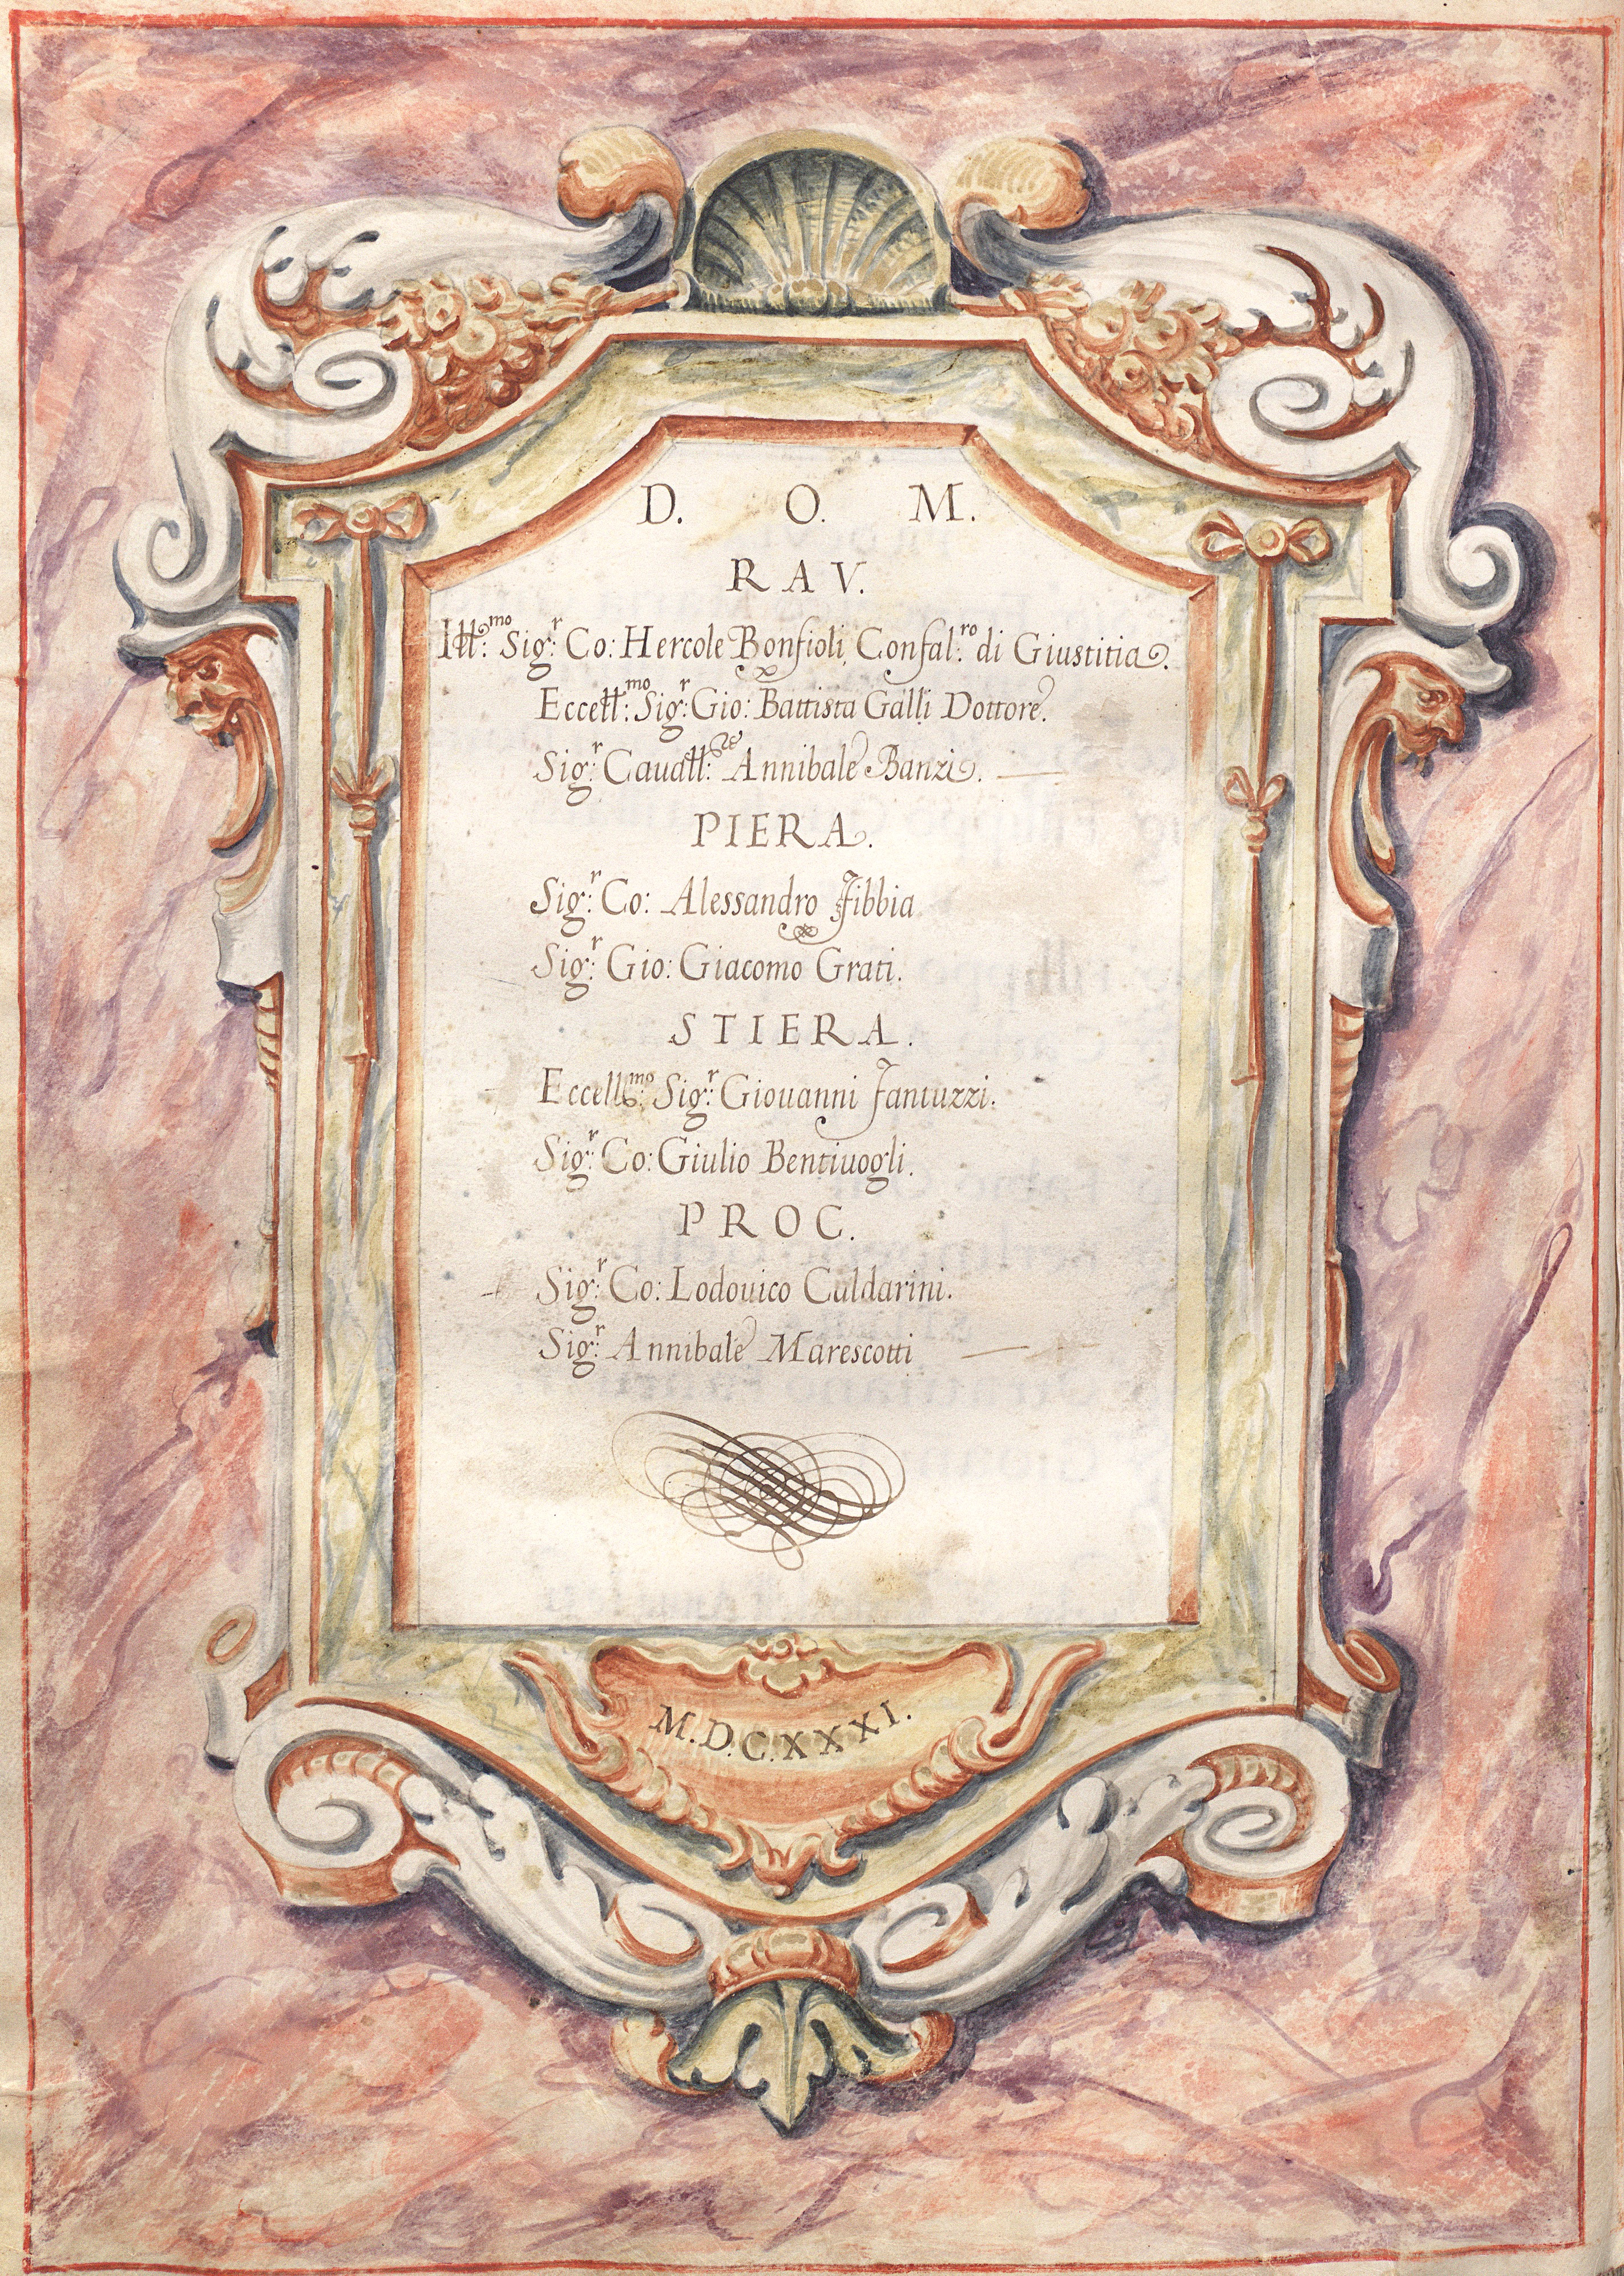 D. O. M.
RAV.
Ill:mo Sig:r Co: Hercole Bonfioli Confal:ro di Giustitia.
Eccell:mo Sig:r Gio: Battista Galli Dottore.
Sig:r Cauall:re Annibale Banzi.
PIERA.
Sig:r Co: Alessandro Fibbia
Sig:r Gio: Giacomo Grati.
STIERA.
Eccell:mo Sig:r Giouanni Fantuzzi.
Sig:r Co: Giulio Bentiuogli.
PROC.
Sig:r Co: Lodouico Caldarini.
Sig:r Annibale Marescotti
M.D.C.XXXI.